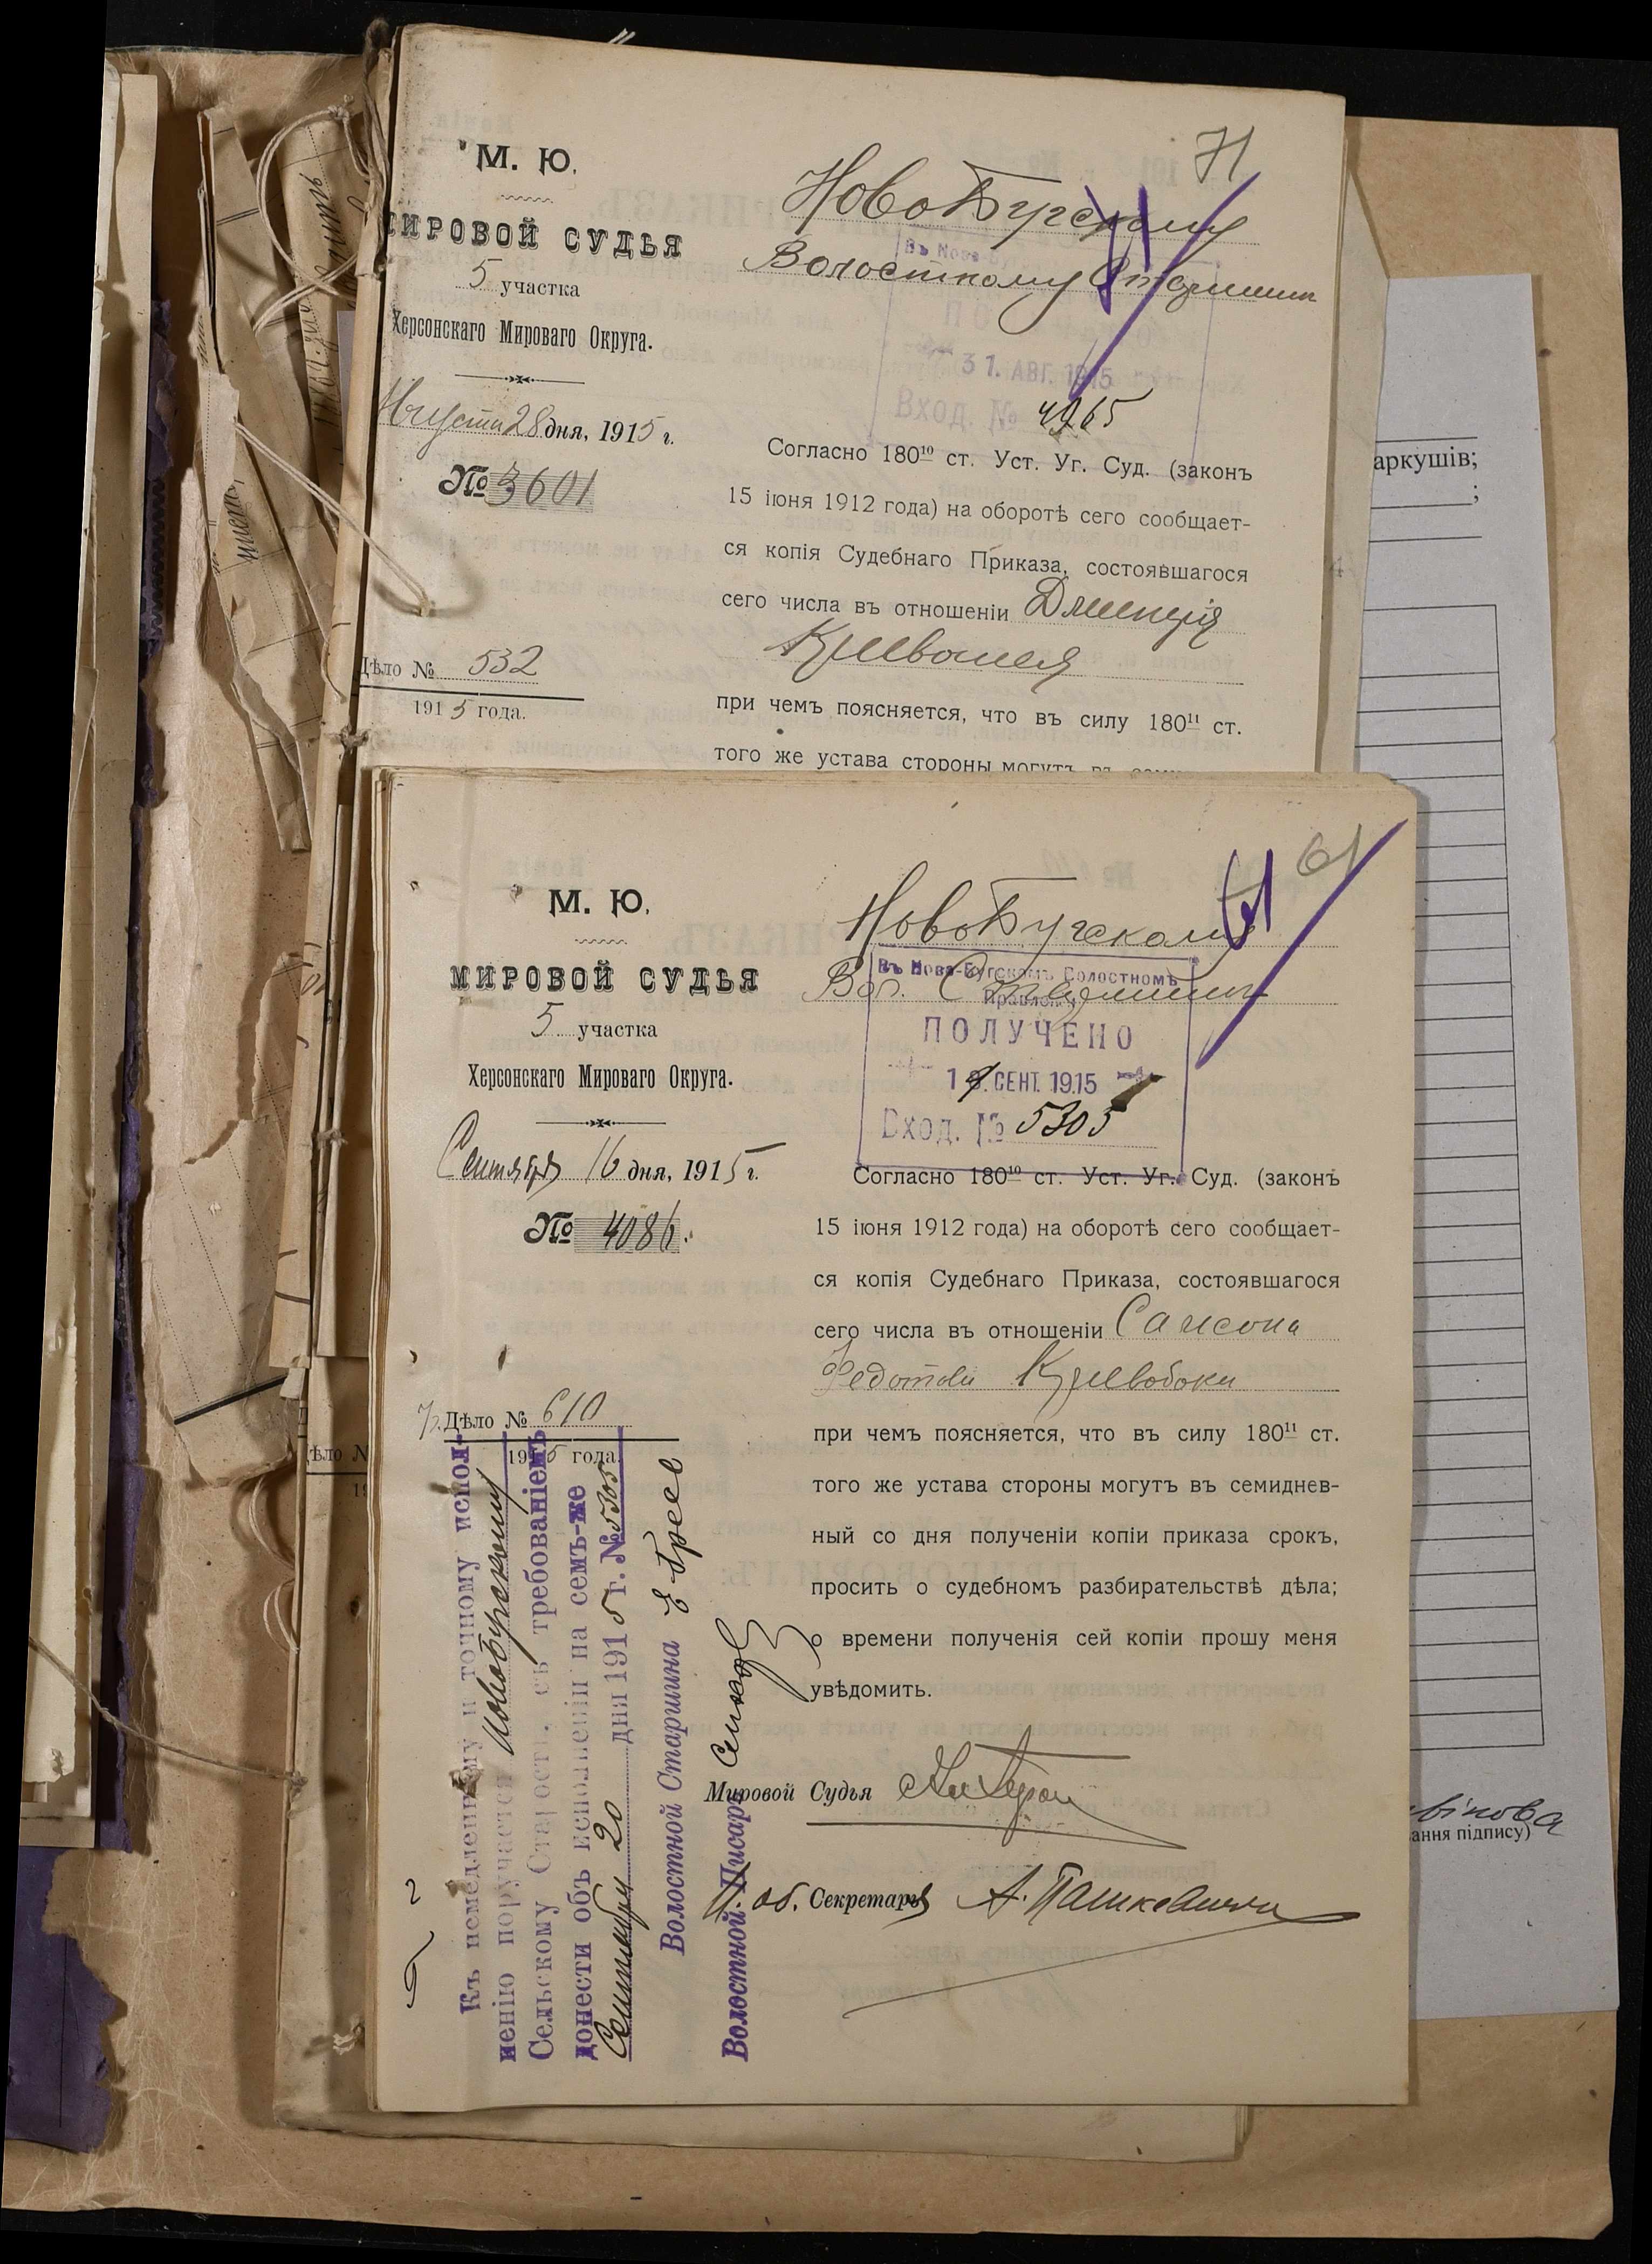 71
М. Ю.
МИРОВОЙ СУДЬЯ
5 участка
Херсонскаго Мироваго Округа.
Августа 28 дня, 1915 г.
№ 3601
Дѣло № 532
1915 года.
НовоБугскому
Волостному
31. АВГ. 1915
Вход. № 4965
Согласно 180¹⁰ ст. Уст. Уг. Суд. (законъ
15 іюня 1912 года) на оборотѣ сего сообщает-
ся копія Судебнаго Приказа, состоявшагося
сего числа въ отношеніи Дмитрія
при чемъ поясняется, что въ силу 180¹¹ ст.
того же устава стороны могутъ въ
61
61
М. Ю.
МИРОВОЙ СУДЬЯ
5 участка
Херсонскаго Мироваго Округа.
Сентября 16 дня, 1915 г.
№ 4086.
Дѣло № 610
1915 года.
НовоБугскому
Вол.
Въ Ново-Бугскомъ Волостномъ
Правленіи
ПОЛУЧЕНО
СЕНТ. 1915
Вход. № 5305
Согласно 180¹⁰ ст. Уст. Уг. Суд. (законъ
15 іюня 1912 года) на оборотѣ сего сообщает-
ся копія Судебнаго Приказа, состоявшагося
сего числа въ отношеніи Самсона
Федотова Кривобока
при чемъ поясняется, что въ силу 180¹¹ ст.
того же устава стороны могутъ въ семиднев-
ный со дня полученіи копіи приказа срокъ,
просить о судебномъ разбирательствѣ дѣла;
о времени полученія сей копіи прошу меня
увѣдомить.
Мировой Судья
И. об. Секретаря А. Пашкевичъ
Къ немедленному и точному испол-
ненію поручается Новобугскому
Сельскому Старостѣ, съ требованіемъ
донести объ исполненіи на семъ-же
Сентября 20 дня 1915 г. № 5305
Волостной Старшина
Волостной Писарь
Дѣло №
аркушів;
;
ання підпису)